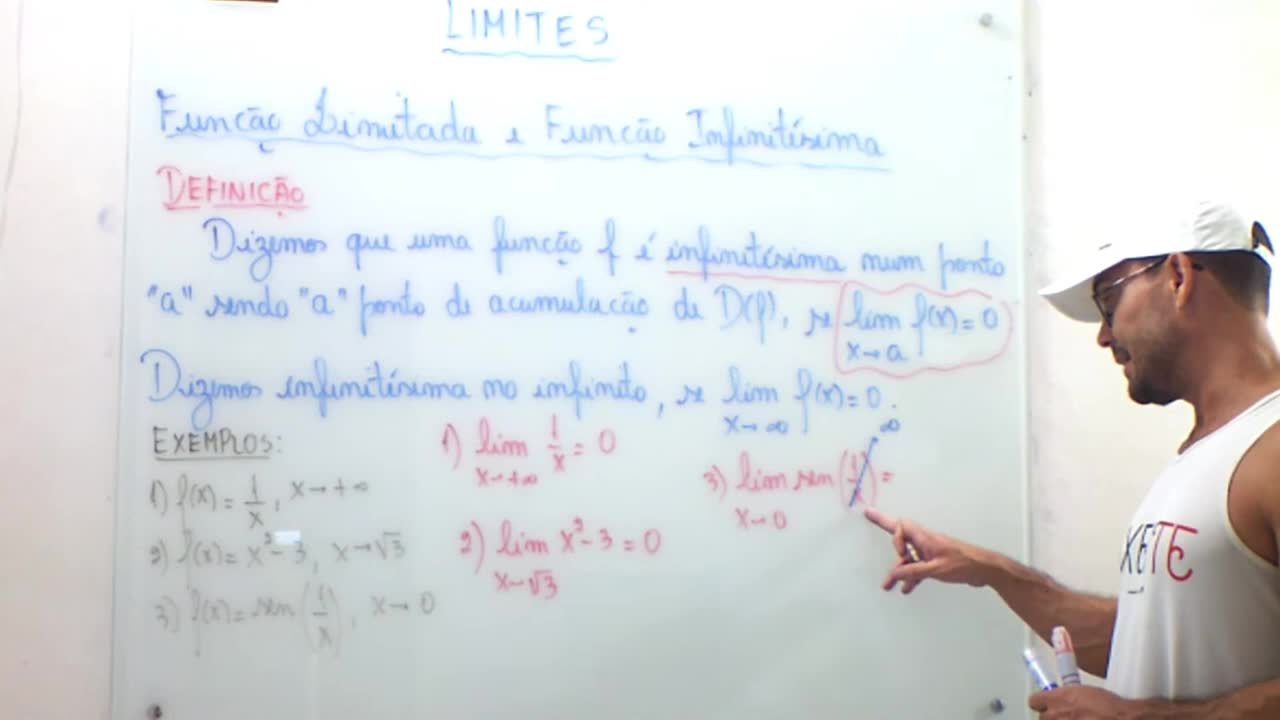 LIMITES
Função Limitada e Função Infinitésima
DEFINIÇÃO
Dizemos que uma função f é infinitésima num ponto
"a" sendo "a" ponto de acumulação de D(f), se lim f(x) = 0
x→a
Dizemos infinitésima no infinito, se lim f(x) = 0.
x→∞
EXEMPLOS:
1) f(x) = 1/x, x→+∞
2) f(x) = x² - 3, x→√3
3) f(x) = sen(1/x), x→0
1) lim 1/x = 0
x→+∞
2) lim x² - 3 = 0
x→√3
3) lim sen(1/x) =
x→0
∞
XETE